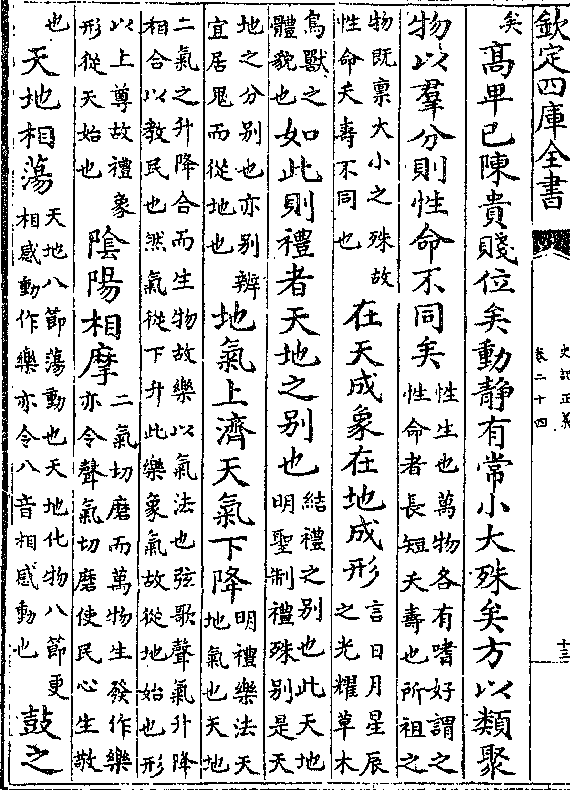 欽定四庫全書
史記正義
卷二十四
十三
矣高卑已陳貴賤位矣動靜有常小大殊矣方以類聚
物以羣分則性命不同矣性生也萬物各有嗜好謂之性命者長短夭壽也所祖之
物既禀大小之殊故性命夭壽不同也在天成象在地成形言日月星辰之光耀草木
鳥獸之體貌也如此則禮者天地之别也結禮之别也此天地明聖制禮殊别是天
地之分别也亦别辨宜居鬼而從地也地氣上濟天氣下降明禮樂法天地氣也天地
二氣之升降合而生物故樂以氣法也弦歌聲氣升降相合以教民也然氣從下升此樂象氣故從地始也形
以上尊故禮象形從天始也隂陽相摩二氣切磨而萬物生發作樂亦令聲氣切磨使民心生敬
也天地相蕩天地八節蕩動也天地化物八節更相感動作樂亦令八音相感動也鼓之